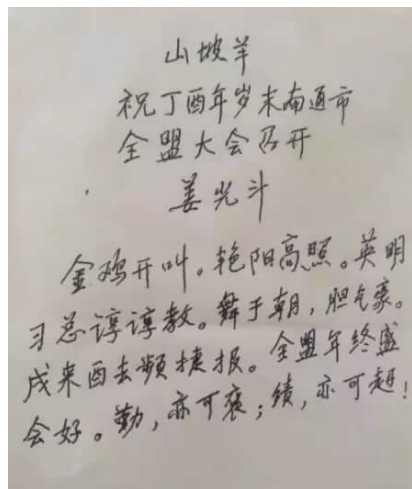 山坡羊
祝丁酉年岁末南通市
全盟大会召开
姜光斗
金鸡开叫。艳阳高照。英明
习总谆谆教。舞于朝，胆气豪。
戌来酉去频捷报。全盟年终盛
会好。勤，亦可褒；绩，亦可超！